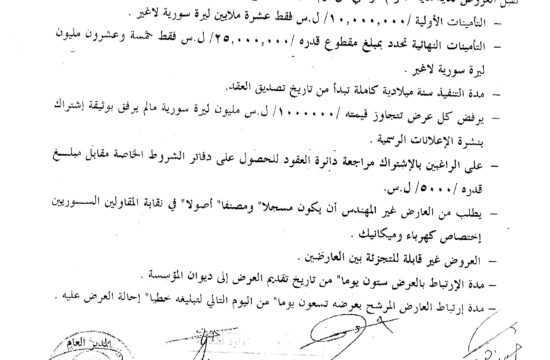 – التأمينات الأولية /١٠,٠٠٠,٠٠٠/ ل.س فقط عشرة ملايين ليرة سورية لاغير .
– التأمينات النهائية تحدد بمبلغ مقطوع قدره /٢٥,٠٠٠,٠٠٠/ ل.س فقط خمسة وعشرون مليون
ليرة سورية لاغير .
– مدة التنفيذ سنة ميلادية كاملة تبدأ من تاريخ تصديق العقد.
– يرفض كل عرض تتجاوز قيمته /١٠٠٠٠٠٠/ ل.س مليون ليرة سورية مالم يرفق بوثيقة إشتراك
بنشرة الإعلانات الرسمية .
– على الراغبين بالإشتراك مراجعة دائرة العقود للحصول على دفاتر الشروط الخاصة مقابل مبلـــغ
قدره /٥٠٠٠/ ل.س.
– يطلب من العارض غير المهندس أن يكون مسجلا" ومصنفا" أصولا" في نقابة المقاولين الســـوريين
إختصاص كهرباء وميكانيك .
– العروض غير قابلة للتجزئة بين العارضين .
– مدة الإرتباط بالعرض ستون يوما" من تاريخ تقديم العرض إلى ديوان المؤسسة .
– مدة إرتباط العارض المرشح بعرضه تسعون يوما" من اليوم التالي لتبليغه خطيا" إحالة العرض عليه .
المدير العام